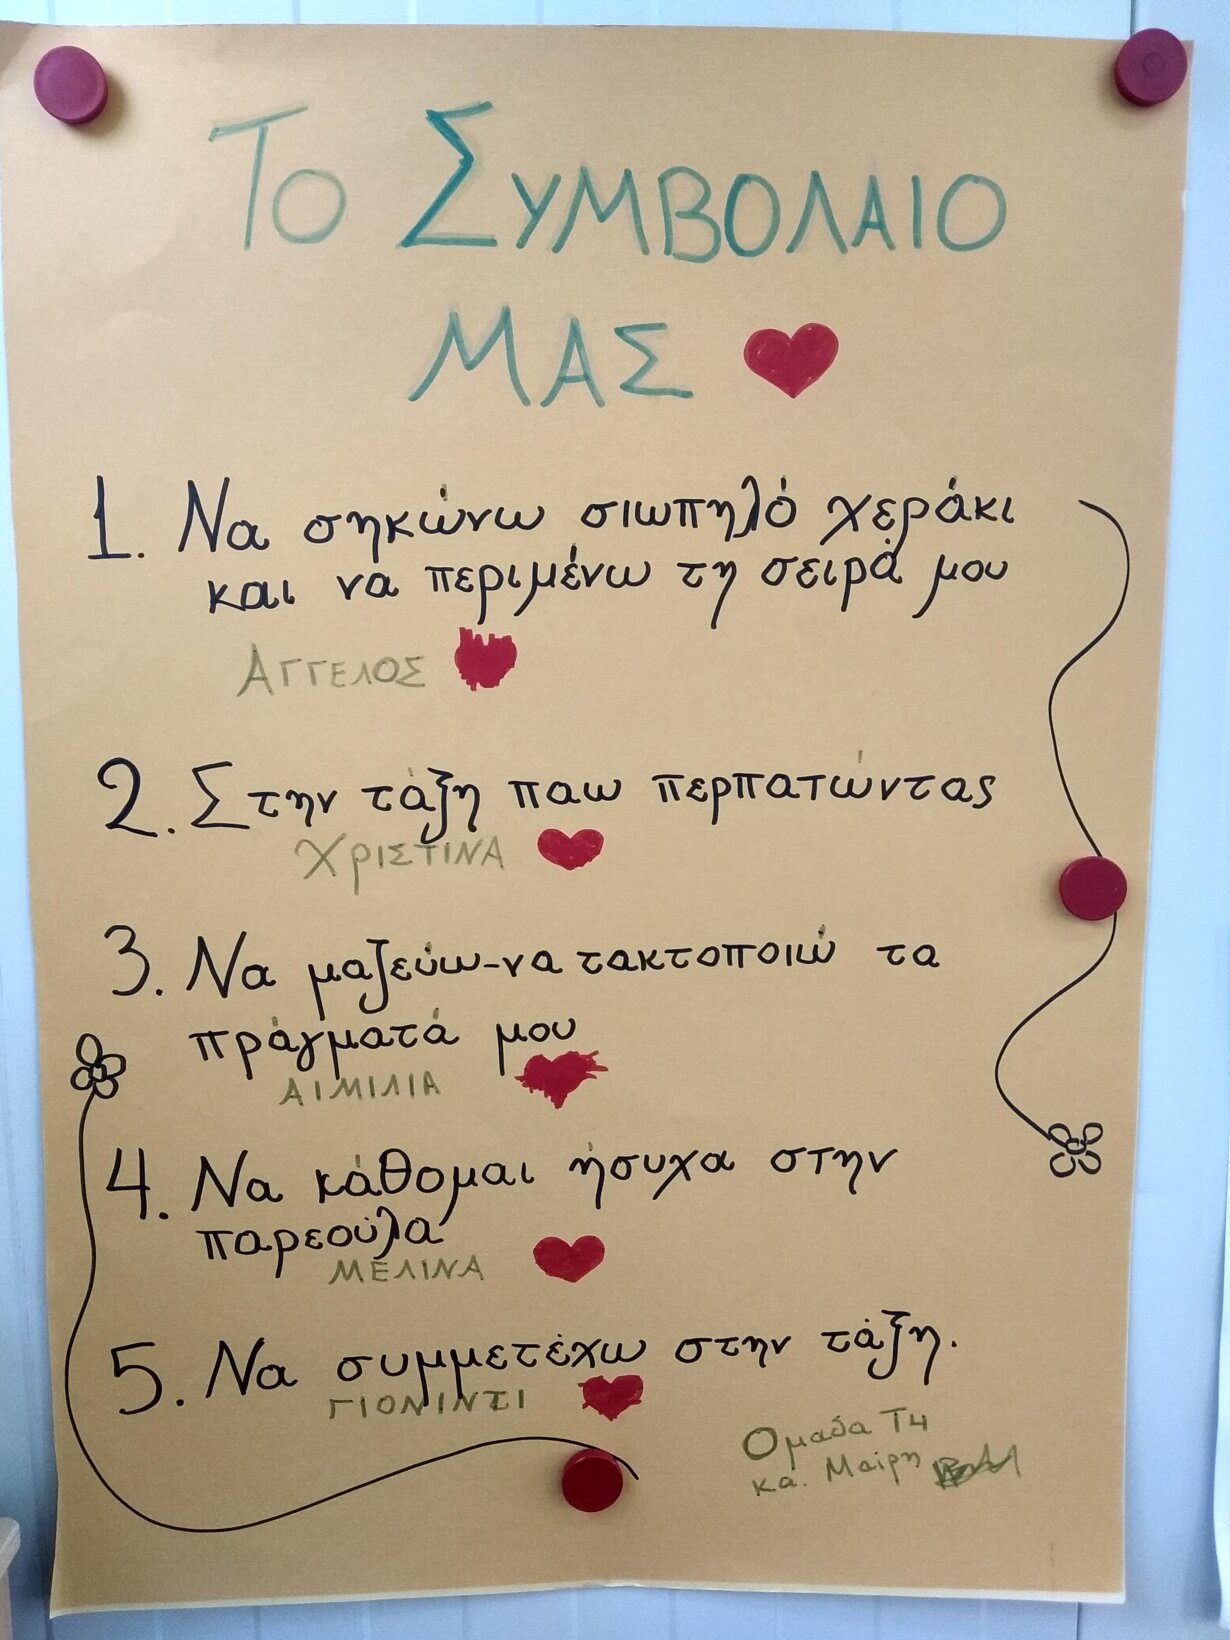 ΤΟ ΣΥΜΒΟΛΑΙΟ
ΜΑΣ
1. Να σηκώνω σιωπηλό χεράκι
και να περιμένω τη σειρά μου
ΑΓΓΕΛΟΣ
2. Στην τάξη παω περπατώντας
ΧΡΙΣΤΙΝΑ
3. Να μαζεύω-να τακτοποιώ τα
πράγματά μου
ΑΙΜΙΛΙΑ
4. Να κάθομαι ήσυχα στην
παρεούλα
ΜΕΛΙΝΑ
5. Να συμμετέχω στην τάξη.
ΓΙΟΝΙΝΤΙ
Ομαδα Τ4
κα. Μαίρη